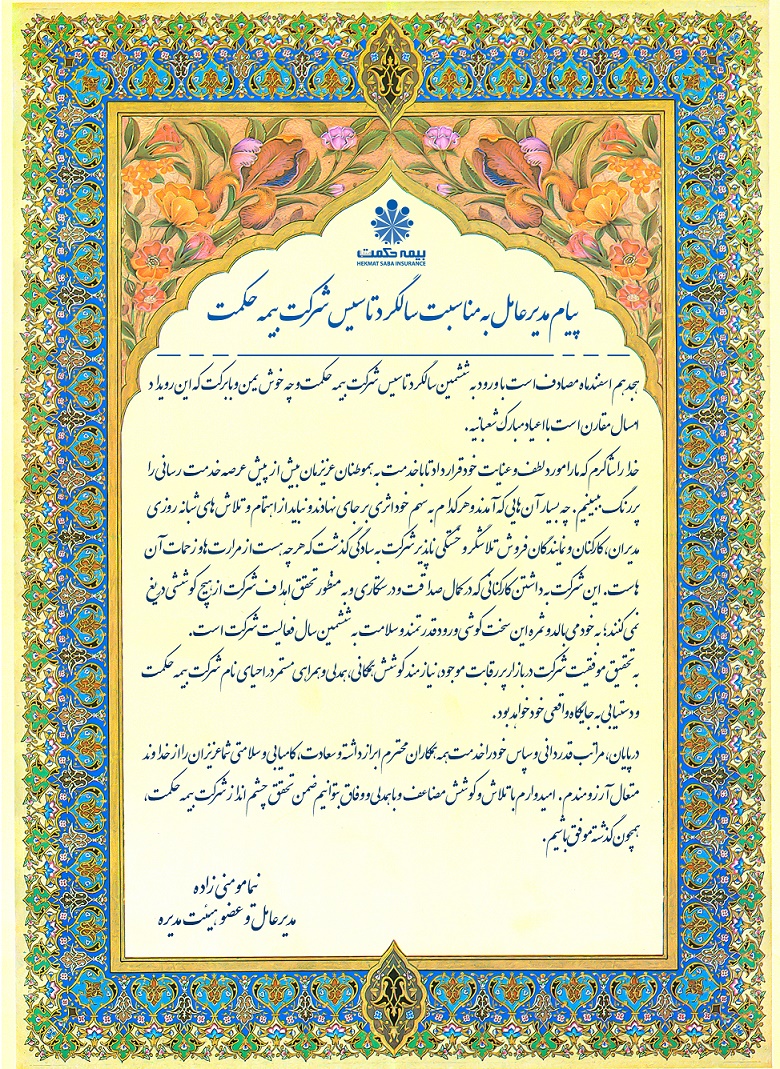 بیمه حکمت
HEKMAT SABA INSURANCE
پیام مدیرعامل به مناسبت سالگرد تاسیس شرکت بیمه حکمت
هجدهم اسفندماه مصادف است با ورود به ششمین سالگرد تاسیس شرکت بیمه حکمت و چه خوش یمن و با برکت که این رویداد
امسال مقارن است با اعیاد مبارک شعبانیه.
خدا را شاکرم که ما را مورد لطف و عنایت خود قرار داد تا با خدمت به هموطنان عزیزمان بیش از پیش عرصه خدمت رسانی را
پررنگ ببینیم. چه بسیار آن هایی که آمدند و هر کدام به سهم خود اثری بر جای نهادند و نباید از اهتمام و تلاش های شبانه روزی
مدیران، کارکنان و نمایندگان فروش تلاشگر و خستگی ناپذیر شرکت به سادگی گذشت که هر چه هست از مرارت ها و زحمات آن
هاست. این شرکت به داشتن کارکنانی که در کمال صداقت و درستکاری و به منظور تحقق اهداف شرکت از هیچ کوششی دریغ
نمی کنند؛ به خود می بالد و ثمره این سخت کوشی ورود قدرتمند و سلامت به ششمین سال فعالیت شرکت است.
به تحقیق موفقیت شرکت در بازار پر رقابت موجود، نیازمند کوشش همگانی، همدلی و همراهی مستمر در احیای نام شرکت بیمه حکمت
و دستیابی به جایگاه واقعی خود خواهد بود.
در پایان، مراتب قدردانی و سپاس خود را خدمت همه همکاران محترم ابراز داشته و سعادت، کامیابی و سلامتی شما عزیزان را از خداوند
متعال آرزومندم. امیدوارم با تلاش و کوشش مضاعف و با همدلی و وفاق بتوانیم ضمن تحقق چشم انداز شرکت بیمه حکمت،
همچون گذشته موفق باشیم.
نیما مومنی زاده
مدیرعامل و عضو هیئت مدیره